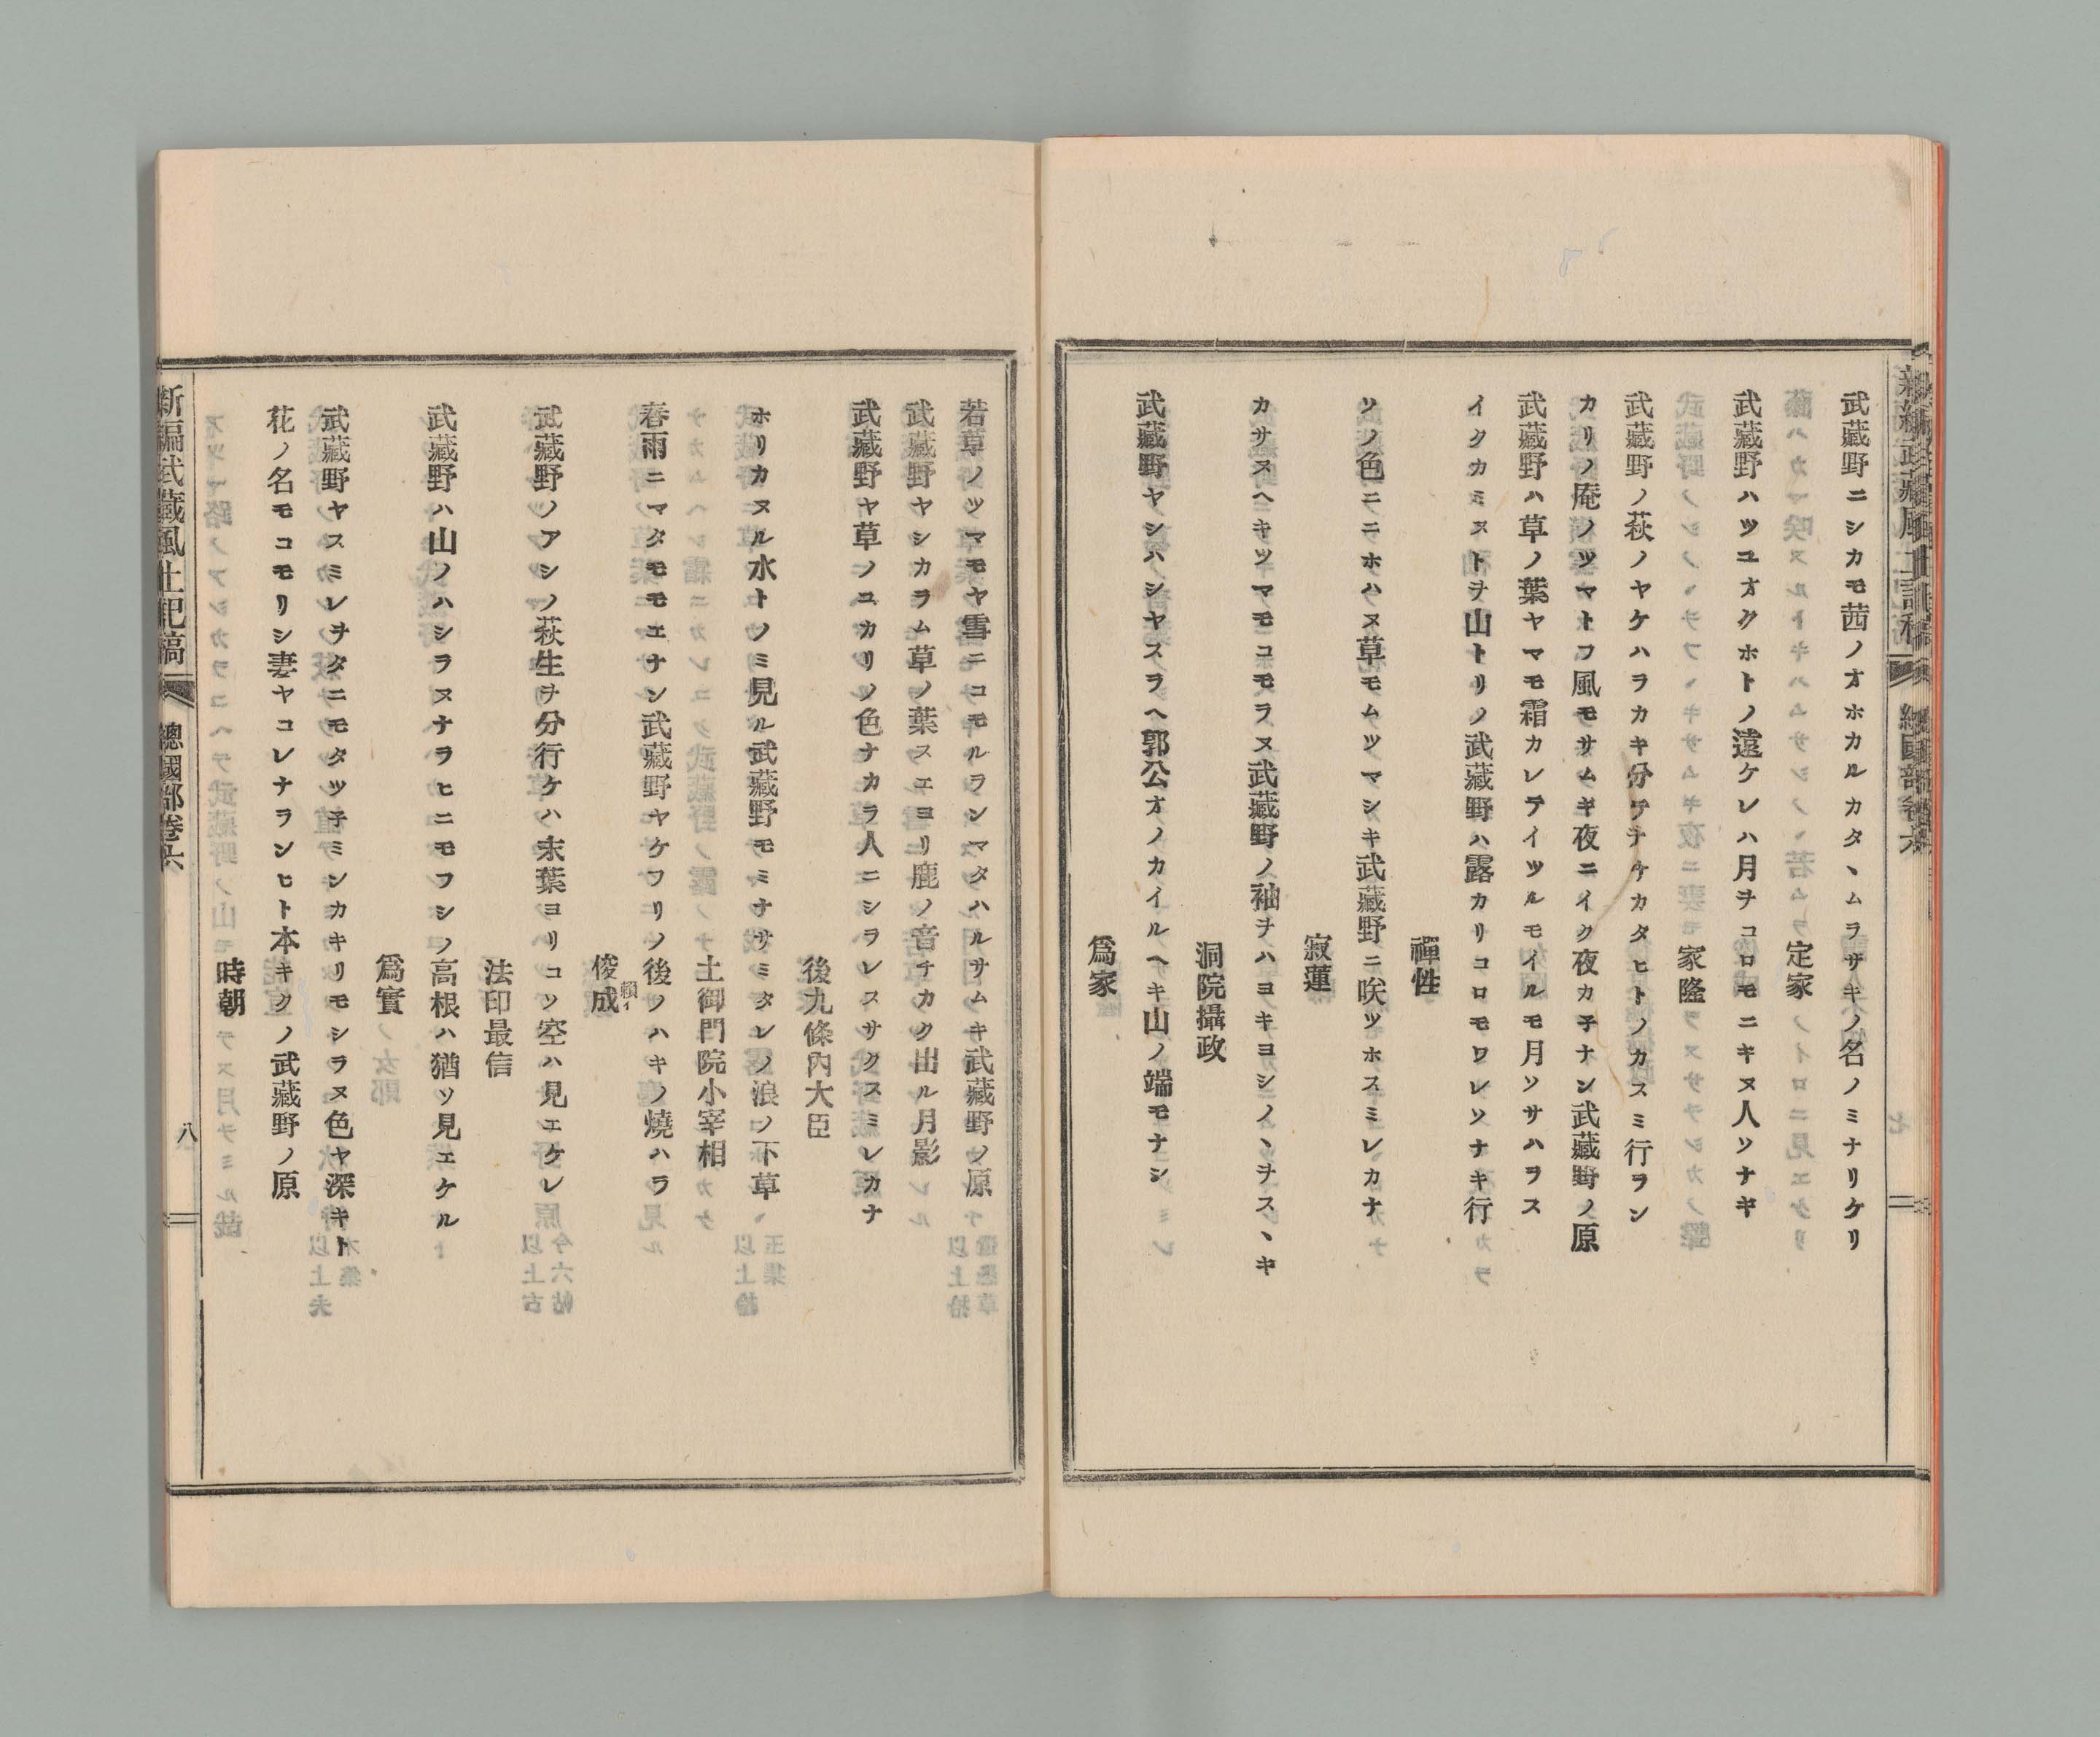 新編武藏風土記稿 總國部卷六
武藏野ニシカモ茜ノオホカルカタヽムラサキノ名ノミナリケリ
定家
武藏野ハツユオクホトノ遠ケレハ月ヲコロモニキヌ人ソナキ
家隆
武藏野ノ萩ノヤケハラカキ分テチケカタヒトノカスミ行ラン
カリノ庵ノツマトフ風モサムキ夜ニイク夜カ子ナン武藏野ノ原
武藏野ハ草ノ葉ヤマモ霜カレテイツルモイルモ月ソサハラス
イクカミストヲ山トリノ武藏野ハ露カリコロモワレソナキ行
禪性
ソノ色ニニホハヌ草モムツマシキ武藏野ニ咲ツホスミレカナ
寂蓮
カサスヘキツマモコモラヌ武藏野ノ袖ヲハヨキヨシノヽヲスヽキ
洞院攝政
武藏野ヤシハシヤスラヘ郭公オノカイルヘキ山ノ端モナシ
爲家
若草ノツマモヤ雪ニコモルランマタハルサムキ武藏野ノ原
武藏野ヤシカラム草ノ葉スエヨリ鹿ノ音チカク出ル月影
武藏野ヤ草ノユカリノ色ナカラ人ニシラレスサクスミレカナ
後九條內大臣
ホリカヌル水トノミ見ル武藏野モミナサミタレノ浪ノ下草
土御門院小宰相
春雨ニマタモモエナン武藏野ヤケフリノ後ノハキノ燒ハラ
俊成 賴イ
武藏野ノアシノ荻生ヲ分行ケハ末葉ヨリコソ空ハ見エケレ
法印最信
武藏野ハ山ノハシラヌナラヒニモフシノ高根ハ猶ソ見エケル
爲實
武藏野ヤスミレヲタニモタツ子ミンカキリモシラヌ色ヤ深キト
花ノ名モコモリシ妻ヤコレナランヒト本キクノ武藏野ノ原
時朝
新編武藏風土記稿 總國部卷六 八